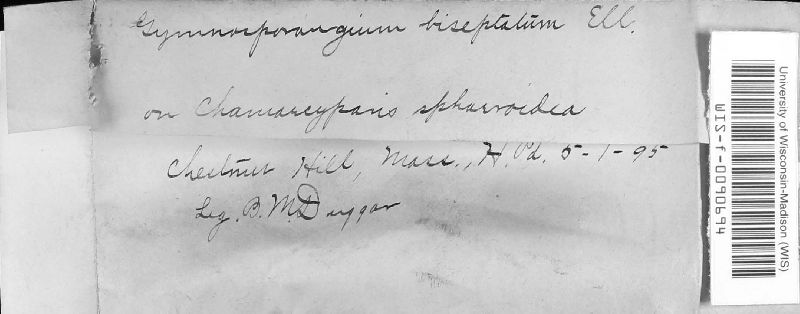 Gymnosporangium biseptatum Ell.
on Chamaecyparis sphaeroidea
Chestnut Hill, Mass., 5-1-95
Leg. B. M. Duggar
University of Wisconsin-Madison (WIS)
WIS-f-0090694